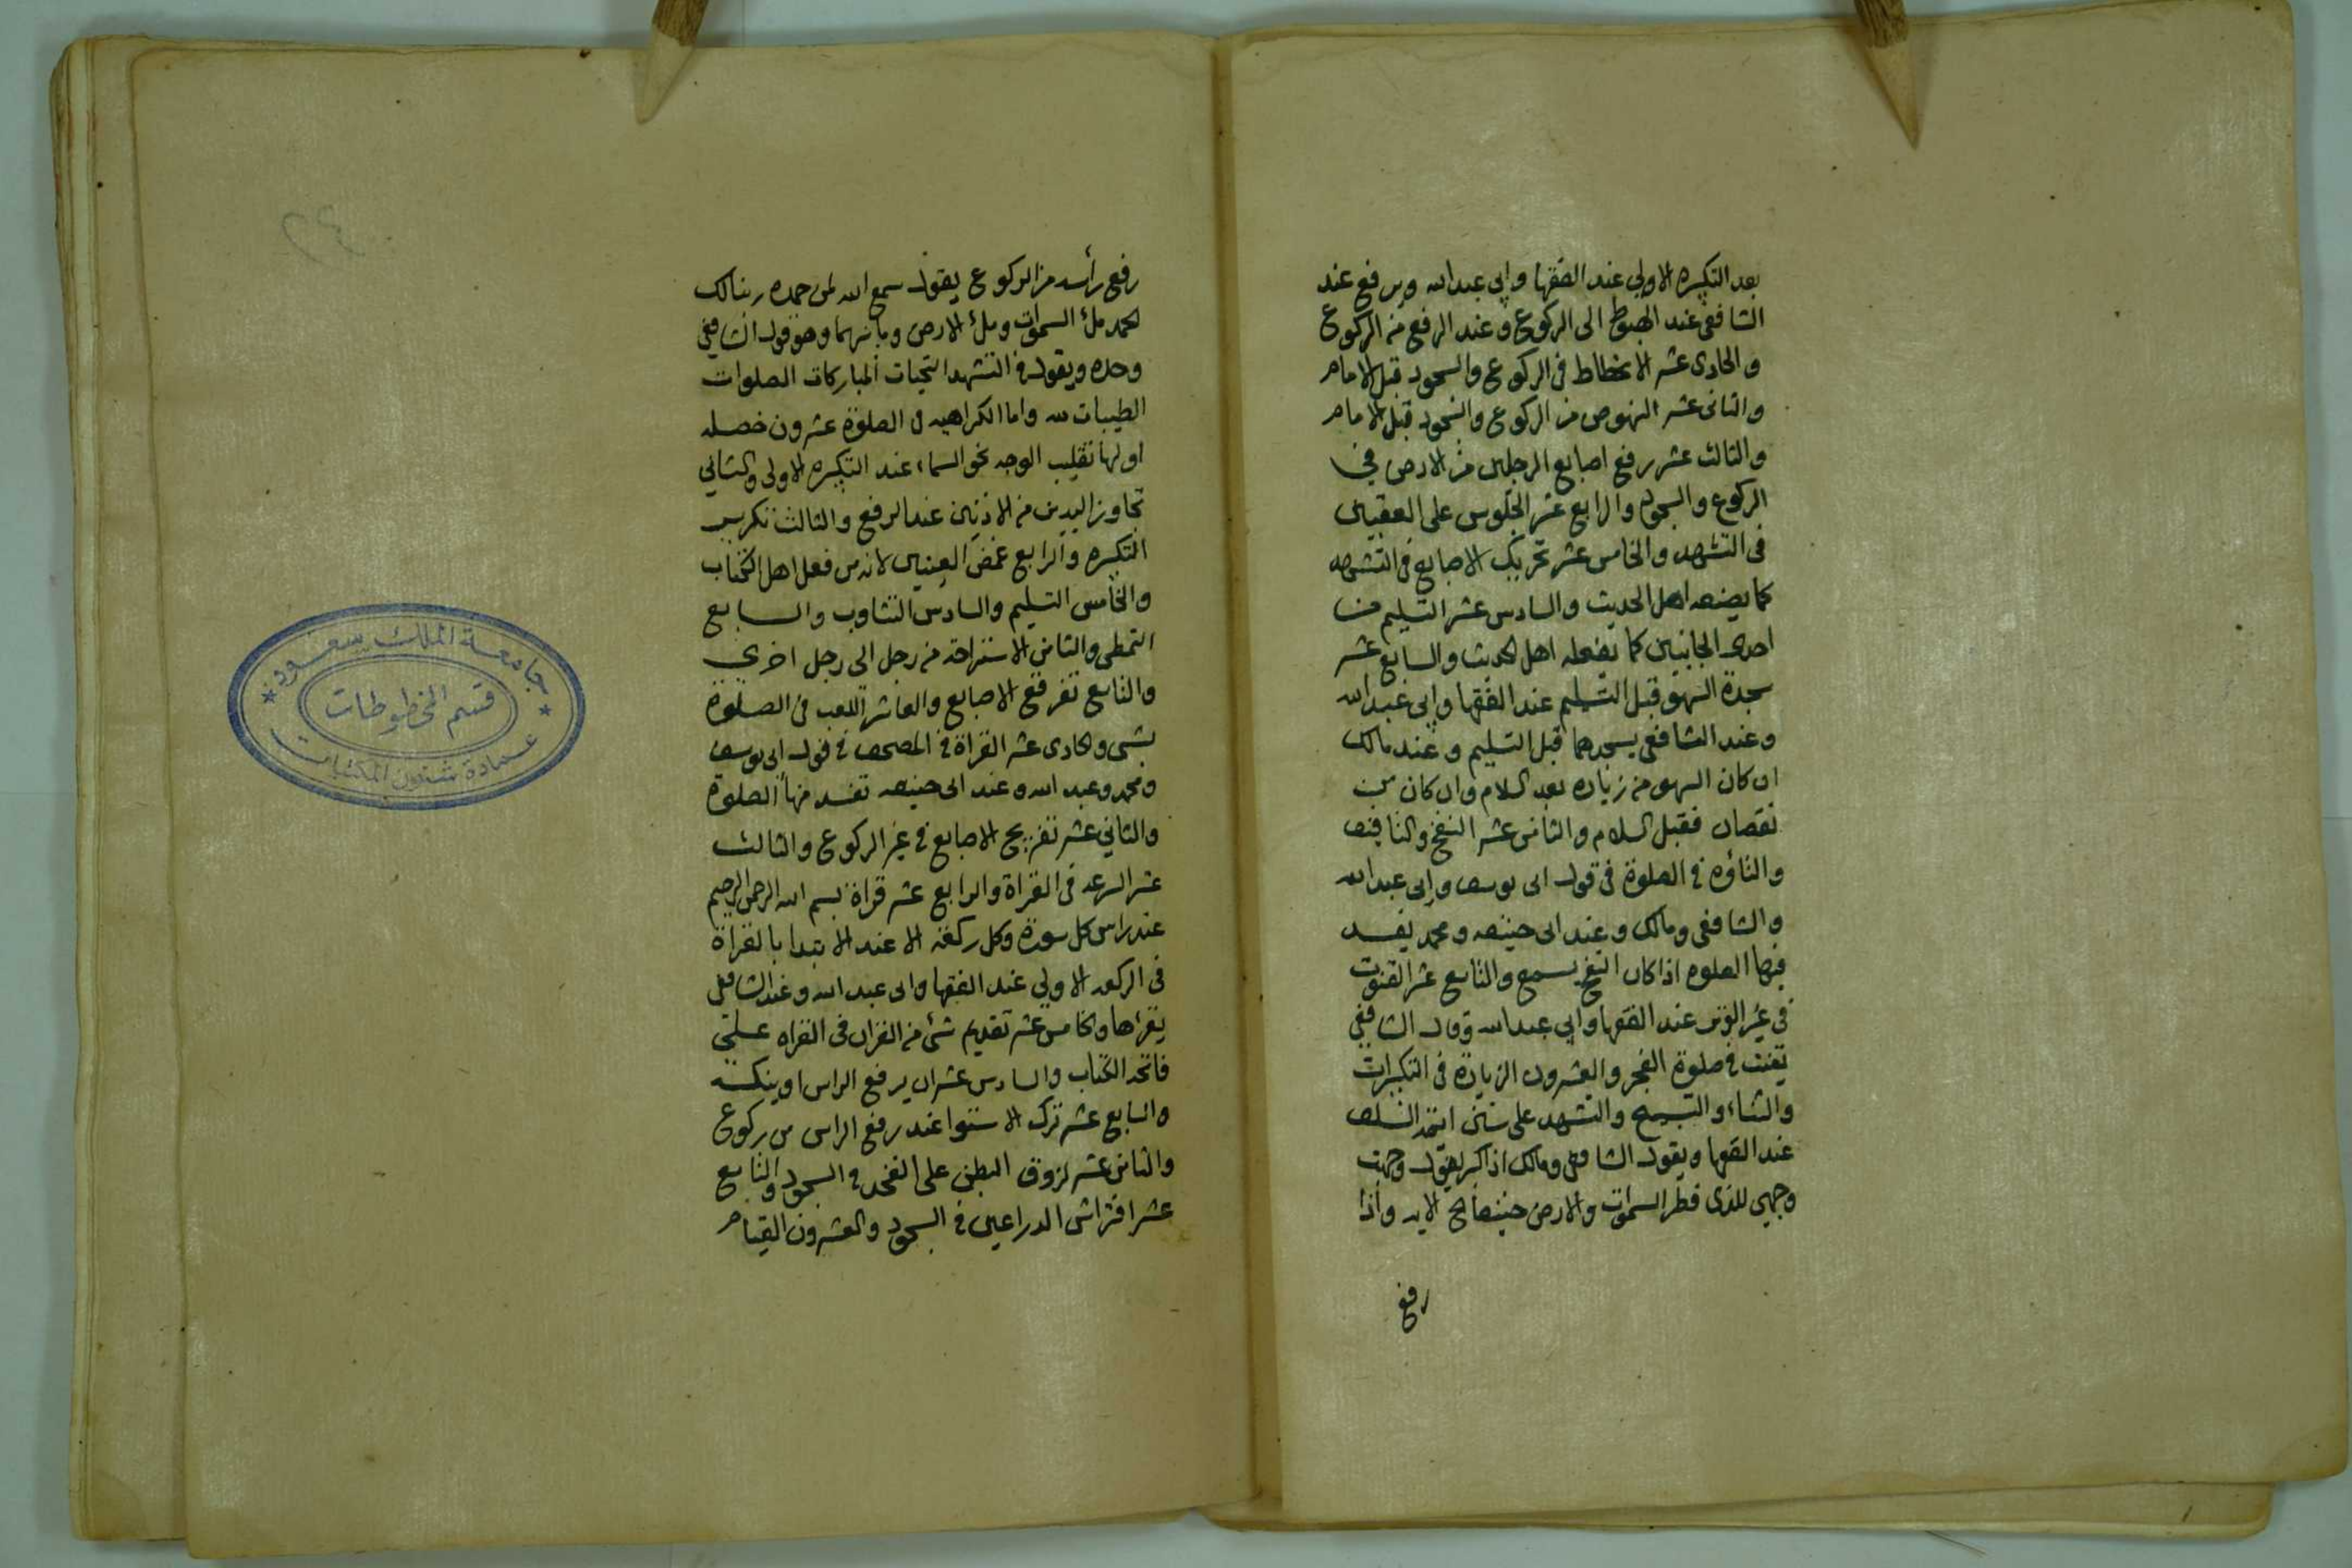 بعد التكبيره الاولى عند الفقها وابى عبدالله ويرفع عند
الشافعى عند الهبوط الى الركوع وعند الرفع من الركوع
والحادى عشر الانحطاط فى الركوع والسجود قبل الامام
والثانى عشر النهوض من الركوع والسجود قبل الامام
والثالث عشر رفع اصابع الرجلين من الارض في
الركوع والسجود والرابع عشر الجلوس على العقبين
فى التشهد والخامس عشر تحريك الاصابع فى التشهد
كما يصنعه اهل الحديث والسادس عشر التسليم من
احدى الجانبين كما يفعله اهل الحديث والسابع عشر
سجدة السهو قبل التسليم عند الفقها وابى عبدالله
وعند الشافعى يسجدهما قبل التسليم وعند مالك
ان كان السهو من زياده بعد السلام وان كان من
نقصان فقبل السلام والثامن عشر النفخ والتافيف
والتاؤه فى الصلوة فى قول ابى يوسف وابى عبدالله
والشافعى ومالك وعند ابى حنيفه ومحمد يفسد
فيها الصلوه اذا كان النفخ يسمع والتاسع عشر القنوت
فى غير الوتر عند الفقها وابى عبدالله وقال الشافعى
يقنت فى صلوة الفجر والعشرون الزيادة فى التكبيرات
والثناء والتسبيح والتشهد على سنن ائمة السلف
عند الفقها ويقول الشافعى ومالك اذا كبر يقول وجهت
وجهي للذى فطر السموات والارض حنيفا الخ الايه واذا
رفع
رفع رأسه من الركوع يقول سمع الله لمن حمده ربنا لك
الحمد ملؤ السموات وملؤ الارض وما بينهما وهو قول الشافعى
وحده ويقول فى التشهد التحيات المباركات الصلوات
الطيبات لله واما الكراهيه فى الصلوة عشرون خصله
اولها تقليب الوجه نحو السماء عند التكبيره الاولى والثاني
تجاوز اليدين من الاذنين عند الرفع والثالث تكرير
التكبيره والرابع غمض العينين لانه من فعل اهل الكتاب
والخامس التسليم والسادس التثاوب والسابع
التمطى والثامن الاستراحة من رجل الى رجل اخرى
والتاسع تفرقع الاصابع والعاشر اللعب فى الصلوة
بشى والحادى عشر القراة فى المصحف فى قول ابى يوسف
ومحمد وعبد الله وعند ابى حنيفه تفسد منها الصلوة
والثاني عشر تفريج الاصابع فى غير الركوع والثالث
عشر السرعه فى القراة والرابع عشر قراة بسم الله الرحمن الرحيم
عند راس كل سورة وكل ركعه الا عند الابتدا بالقراة
فى الركعه الاولى عند الفقها وابى عبد الله وعند الشافعى
يقرئها والخامس عشر تقديم شئ من القران فى القراه على
فاتحة الكتاب والسادس عشر ان يرفع الراس او ينكسه
والسابع عشر ترك الاستوا عند رفع الراس من ركوع
والثامن عشر لزوق البطن على الفخد فى السجود والتاسع
عشر افتراش الدراعين فى السجود والعشرون القيام
٢٤
جامعة الملك سعود
قسم المخطوطات
عمادة شئون المكتبات